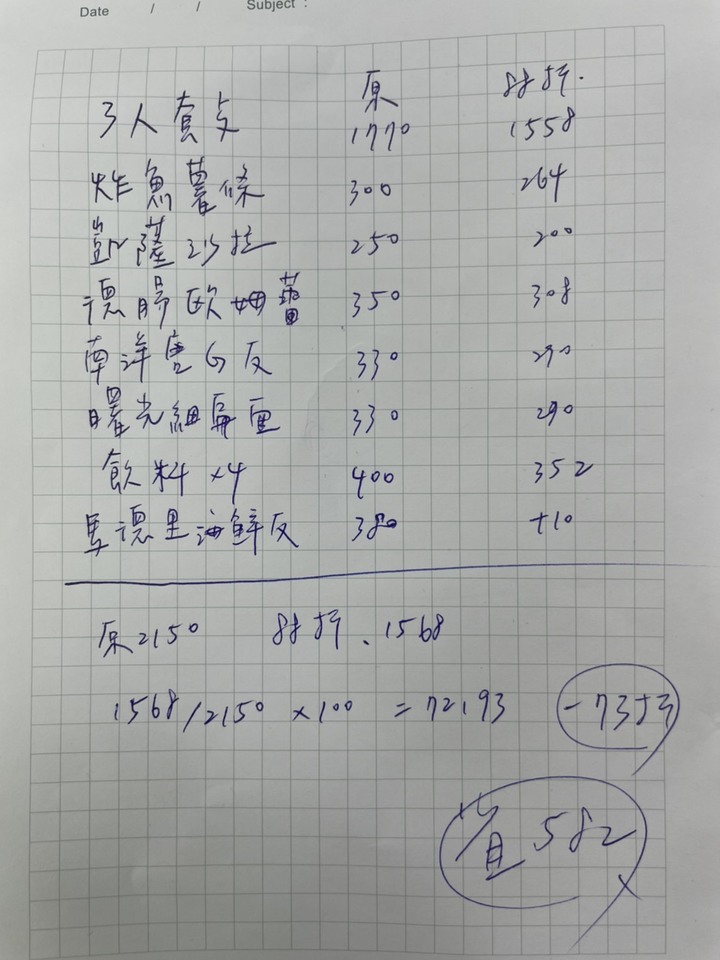 Date / / Subject :
原 88折.
3人套文 1770 1558
炸魚薯條 300 264
凱薩沙拉 250 200
德腸歐姆蕾 350 308
南洋唐G反 330 290
曙光細扁面 330 290
飲料 x4 400 352
馬德里海鮮反 380 +10
原2150 88折、1568
1568/2150 x100 = 72,93 -73折
省582